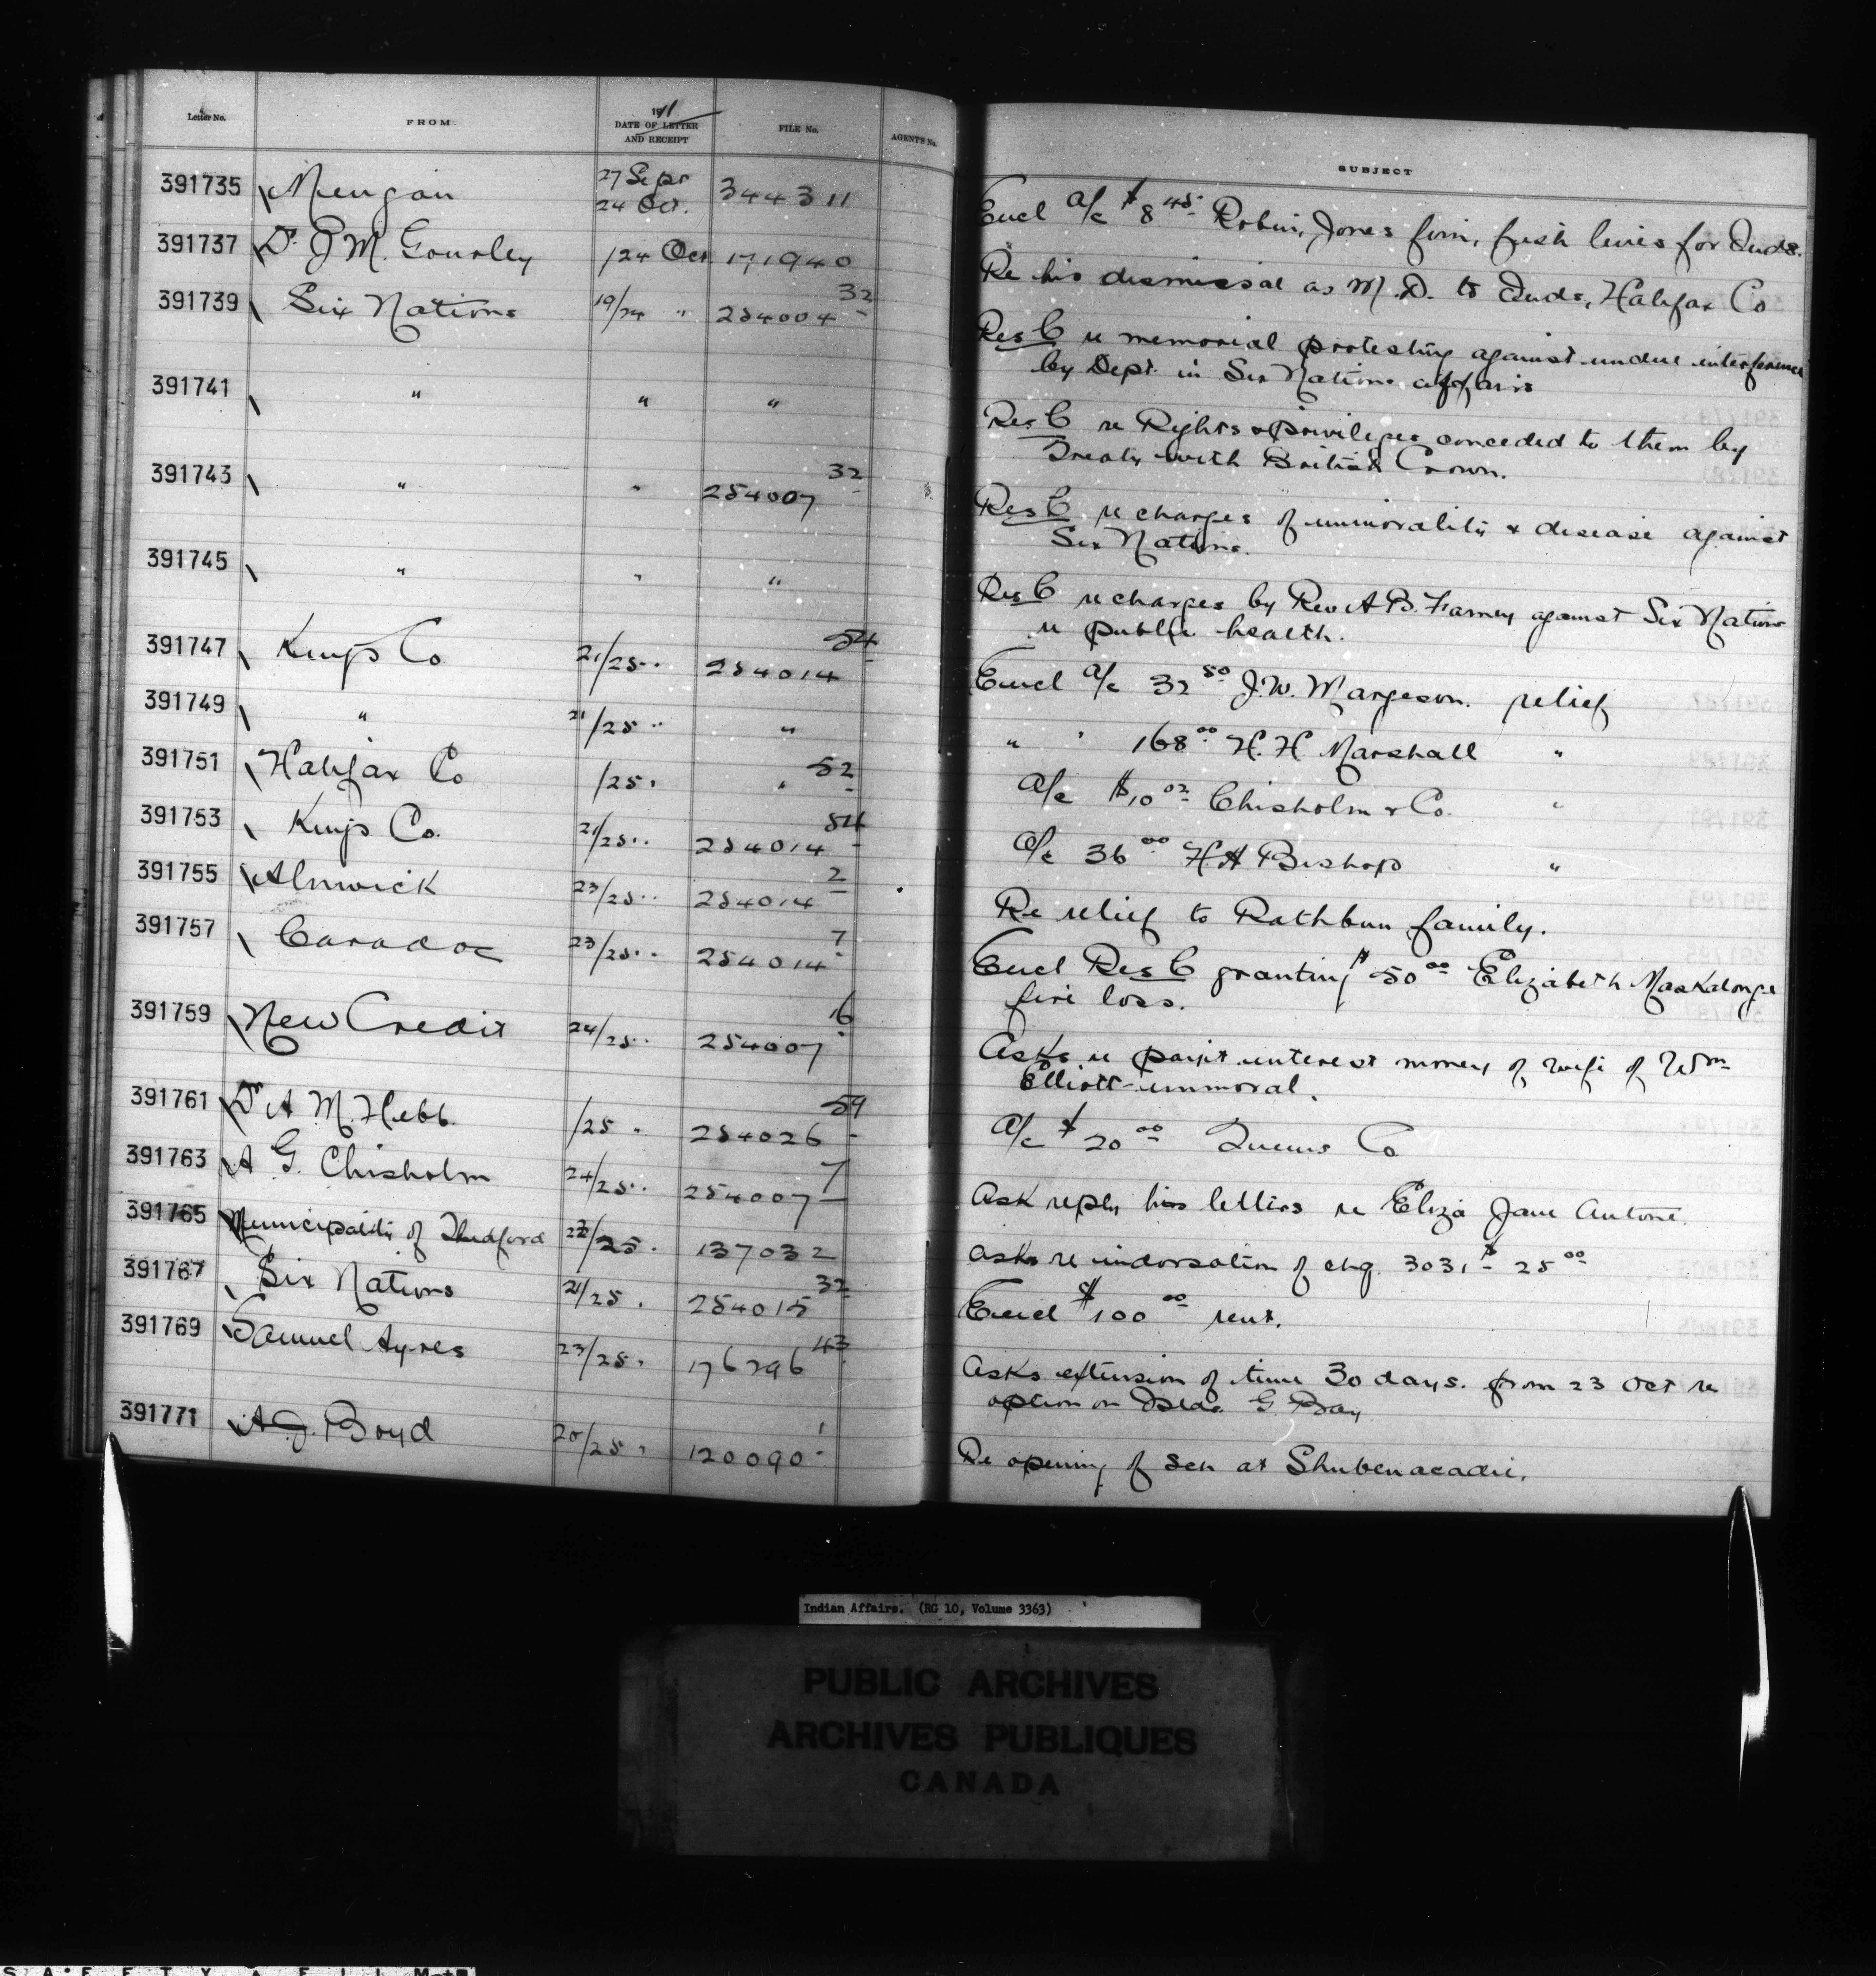 Letter No. FROM 1911 DATE OF LETTER AND RECEIPT FILE No. AGENTS No. SUBJECT
391735 Mingan 27 Sept 24 Oct. 344311 Encl a/c $8 45 Robin, Jones firm, fish lines for Inds.
391737 Dr J M. Gourley /24 Oct 171940 Re his dismissal as M.D. to Inds, Halifax Co
391739 Six Nations 19/24 " 254004 32 Res C re memorial protesting against undue interference
by Dept. in Six Nations affairs
391741 " " " Res C re Rights & privileges conceded to them by
Treaty with British Crown.
391743 " " 254007 32 Res C re charges of immorality & disease against
Six Nations.
391745 " " " Res C re charges by Rev A B. Farney against Six Nations
re public health.
391747 Kings Co 21/25 " 254014 54 Encl a/c 32 50 J.W. Margeson. relief
391749 " 21/25 " " " " 168 00 H. H Marshall "
391751 Halifax Co /25 " " 52 a/c $10 02 Chisholm & Co. "
391753 Kings Co. 21/25 " 254014 54 a/c 36 00 H.H Bishop "
391755 Alnwick 23/25 " 254014 2 Re relief to Rathbun family.
391757 Caradoc 23/25 " 254014 7 Encl Res C granting $50 00 Elizabeth Maskalonge
fire loss.
391759 New Credit 24/25 " 254007 16 Asks re paym't interest money of wife of Wm
Elliott immoral.
391761 Dr A M. Hebb. /25 " 254026 59 a/c $20 00 Queens Co
391763 A G. Chisholm 24/25 " 254007 7 Ask reply his letters re Eliza Jane Antone.
391765 Municipality of Thedford /25 " 137032 asks re indorsation of chq. 3031 $25 00
391767 Six Nations 21/25 " 254015 32 Encl $100 00 rent.
391769 Samuel Ayres 23/25 " 176296 43 Asks extension of time 30 days. from 23 Oct re
option on Islds. G Bay
391771 A J. Boyd 20/25 " 120090 1 Re opening of sch at Shubenacadie.
Indian Affairs. (RG 10, Volume 3363)
PUBLIC ARCHIVES
ARCHIVES PUBLIQUES
CANADA